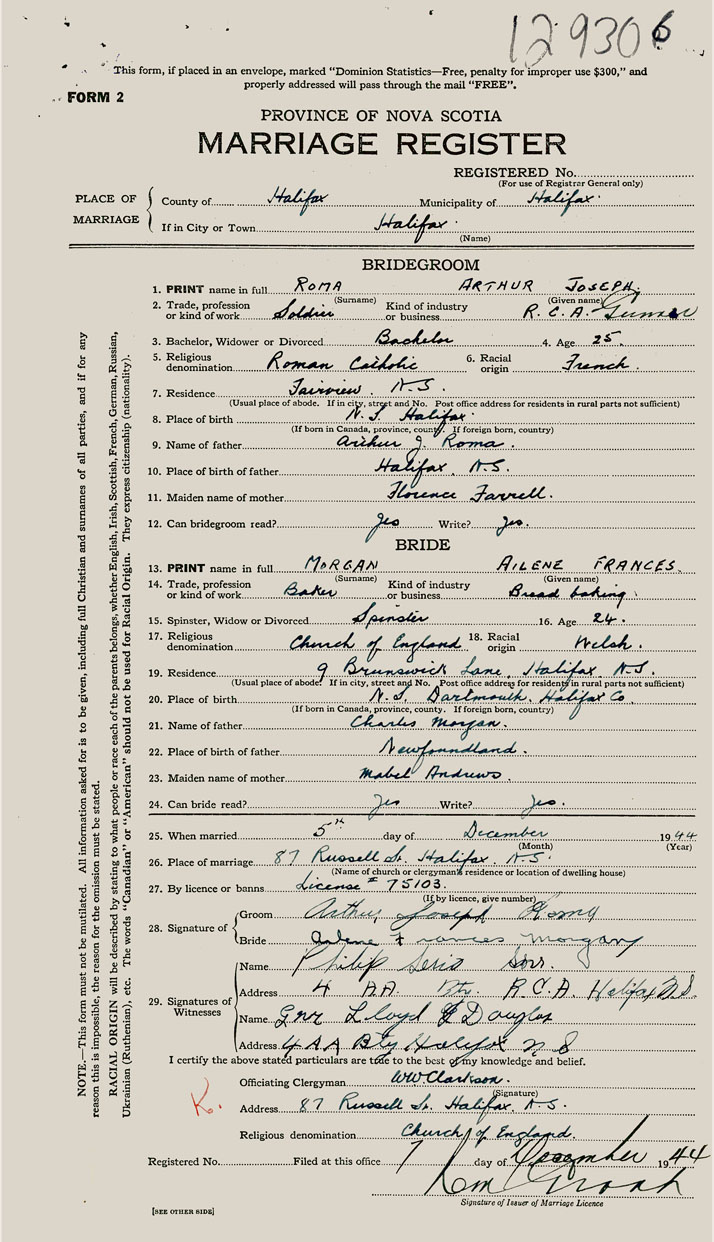 129306
This form, if placed in an envelope, marked “Dominion Statistics—Free, penalty for improper use $300,” and
properly addressed will pass through the mail “FREE”.
FORM 2
PROVINCE OF NOVA SCOTIA
MARRIAGE REGISTER
REGISTERED No.
(For use of Registrar General only)
PLACE OF MARRIAGE
County of Halifax Municipality of Halifax
If in City or Town Halifax
(Name)
BRIDEGROOM
1. PRINT name in full ROMA ARTHUR JOSEPH
(Surname) (Given name)
2. Trade, profession or kind of work Soldier Kind of industry or business R.C.A. Gunner
3. Bachelor, Widower or Divorced Bachelor 4. Age 25
5. Religious denomination Roman Catholic 6. Racial origin French
7. Residence Fairview. N.S.
(Usual place of abode. If in city, street and No. Post office address for residents in rural parts not sufficient)
8. Place of birth N.S. Halifax
(If born in Canada, province, county. If foreign born, country)
9. Name of father Arthur J. Roma.
10. Place of birth of father Halifax, N.S.
11. Maiden name of mother Florence Farrell.
12. Can bridegroom read? Yes Write? Yes.
BRIDE
13. PRINT name in full MORGAN AILENE FRANCES.
(Surname) (Given name)
14. Trade, profession or kind of work Baker Kind of industry or business Bread baking.
15. Spinster, Widow or Divorced Spinster 16. Age 24.
17. Religious denomination Church of England 18. Racial origin Welsh.
19. Residence 9 Brunswick Lane, Halifax, N.S.
(Usual place of abode. If in city, street and No. Post office address for residents in rural parts not sufficient)
20. Place of birth N.S. Dartmouth, Halifax Co.
(If born in Canada, province, county. If foreign born, country)
21. Name of father Charles Morgan.
22. Place of birth of father Newfoundland.
23. Maiden name of mother Mabel Andrews.
24. Can bride read? Yes Write? Yes.
25. When married 5th day of December 1944
(Month) (Year)
26. Place of marriage 87 Russell St. Halifax. N.S.
(Name of church or clergyman's residence or location of dwelling house)
27. By licence or banns License # 75103.
(If by licence, give number)
28. Signature of
Groom Arthur Joseph Roma
Bride Ailene Frances Morgan
29. Signatures of Witnesses
Name Philip
Address 4 AA Bty. R.C.A Halifax N.S.
Name Gnr Lloyd Douglas
Address 4 AA Bty Halifax N S
I certify the above stated particulars are true to the best of my knowledge and belief.
Officiating Clergyman WW Clarkson.
(Signature)
K.
Address 87 Russell St. Halifax. N.S.
Religious denomination Church of England.
Registered No. Filed at this office 7 day of December 1944
Signature of Issuer of Marriage Licence
[SEE OTHER SIDE]
NOTE.—This form must not be mutilated. All information asked for is to be given, including full Christian and surnames of all parties, and if for any
reason this is impossible, the reason for the omission must be stated.
RACIAL ORIGIN will be described by stating to what people or race each of the parents belongs, whether English, Irish, Scottish, French, German, Russian,
Ukrainian (Ruthenian), etc. The words “Canadian” or “American” should not be used for Racial Origin. They express citizenship (nationality).